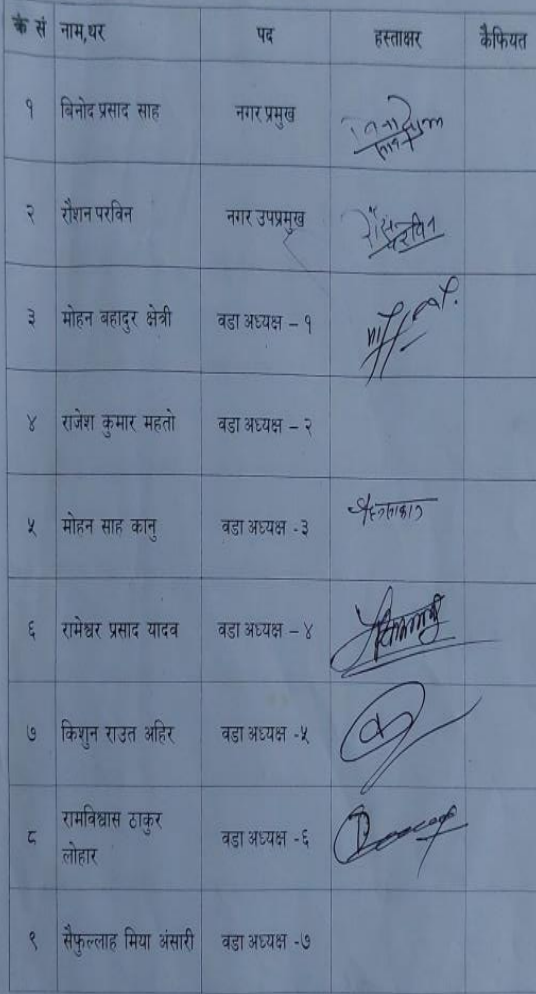 क्र सं नाम,थर पद हस्ताक्षर कैफियत
१ बिनोद प्रसाद साह नगर प्रमुख
२ रौशन परविन नगर उपप्रमुख
३ मोहन बहादुर क्षेत्री वडा अध्यक्ष – १
४ राजेश कुमार महतो वडा अध्यक्ष – २
५ मोहन साह कानु वडा अध्यक्ष -३
६ रामेश्वर प्रसाद यादव वडा अध्यक्ष – ४
७ किशुन राउत अहिर वडा अध्यक्ष -५
८ रामविश्वास ठाकुर
लोहार वडा अध्यक्ष -६
९ सैफुल्लाह मिया अंसारी वडा अध्यक्ष -७